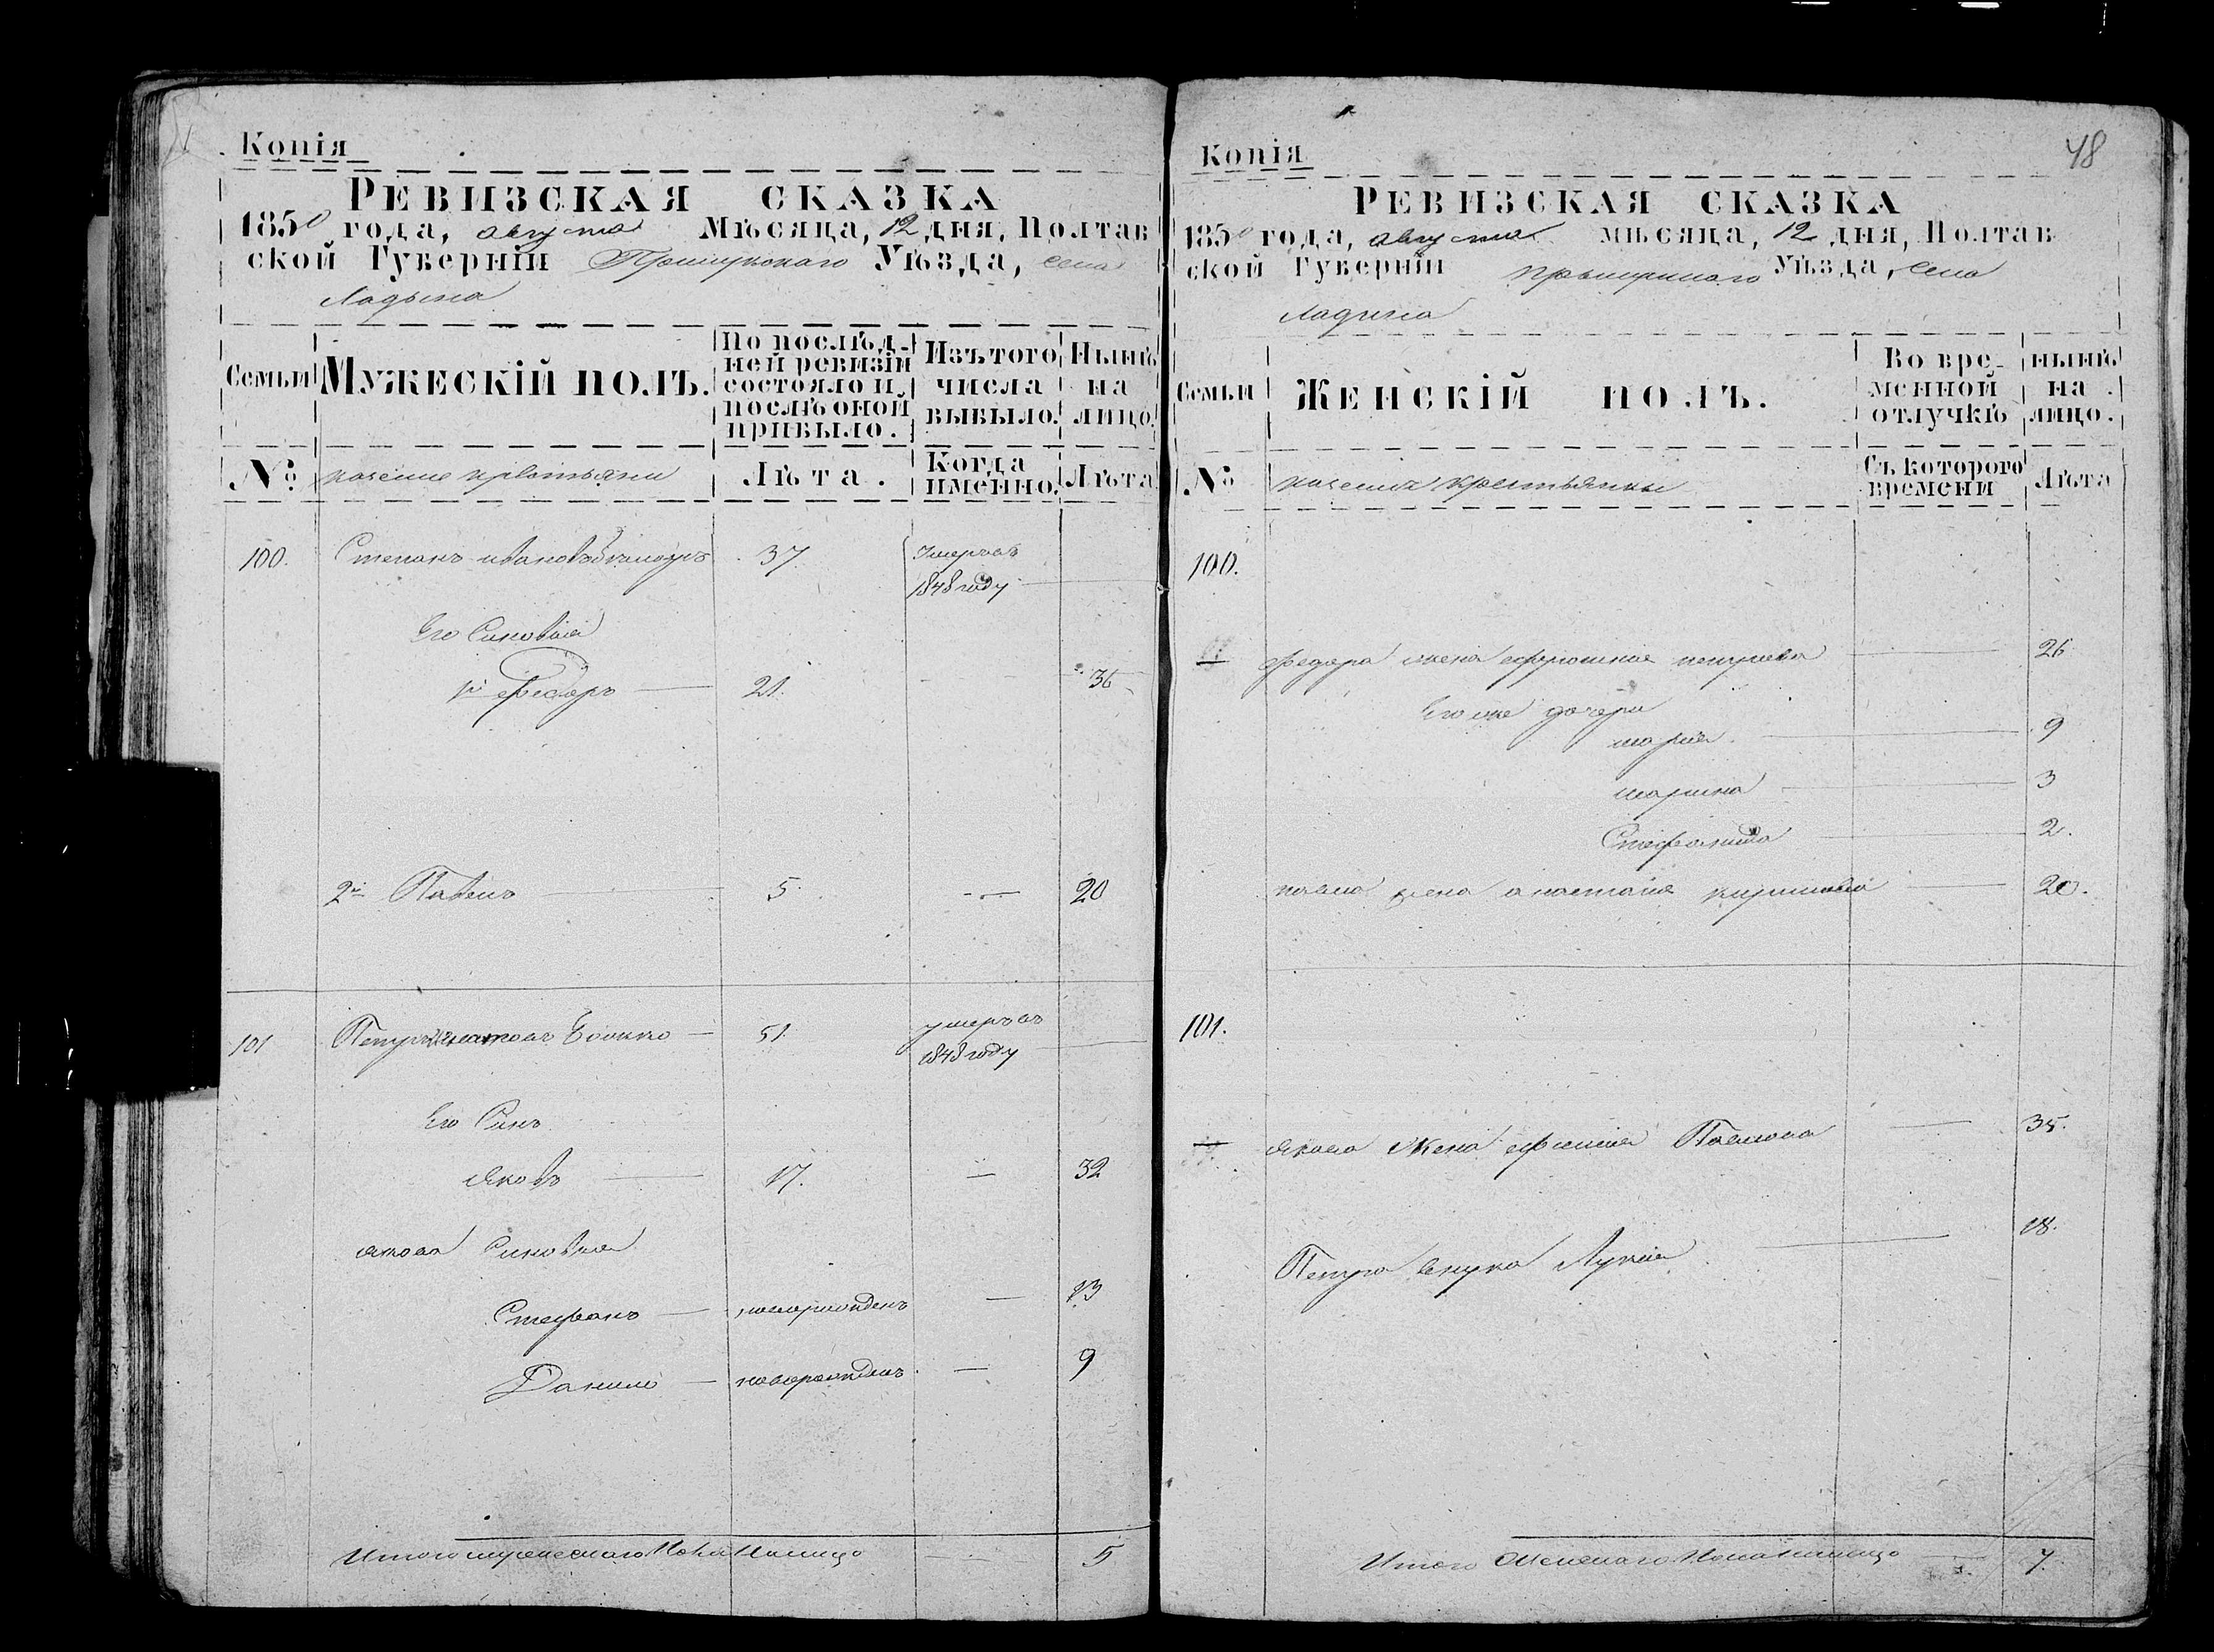 Копія
РЕВИЗСКАЯ СКАЗКА
1850 года, августа Мѣсяца, 12 дня, Полтав
ской Губерніи Прилуцкаго Уѣзда, села
Ладына
Семьи
МУЖЕСКІЙ ПОЛЪ.
По послѣд-
ней ревизіи
состояло и
послѣ оной
прибыло.
Изъ того
числа
выбыло.
Нынѣ
на
лицо.
№
казенные крестьяне
Лѣта.
Когда
именно.
Лѣта
100. Степанъ ивановъ 37. Умеръ въ
1848 году
Его Синовья
1й Федоръ 21. 36
2й Павелъ 5. 20
101 Петръ 51. умеръ въ
1848 году
Его Синъ
Яковъ 17. 32
Якова Синовья
Стефанъ новорожденъ 13
Данило новорожденъ 9
Итого мужескаго Пола На лицо 5
Копія
48
РЕВИЗСКАЯ СКАЗКА
1850 года, августа мѣсяца, 12 дня, Полтав
ской Губерніи Прилуцкаго Уѣзда, Села
Ладина
Семьи
ЖЕНСКІЙ ПОЛЪ.
Во вре-
менной
отлучкѣ
нынѣ
на
лицо.
№
казенныя крестьянки
Съ котораго
времени
Лѣта
100.
Федора жена ефросиния петрова 26
Его же дочери
марія 9
марина 3
Стефанида 2.
павла жена анастасия кирилова 20.
101.
Якова Жена ефимия Павлова 35.
Петра внука Лукія 18.
Итого Женскаго Пола На лицо 7.